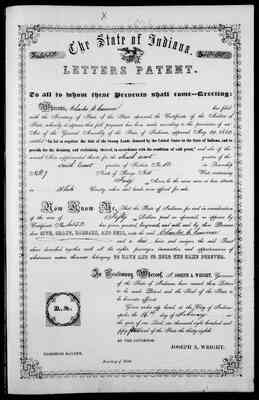 The State of Indiana.
LETTERS PATENT.
To all to whom these Presents shall come—Greeting:
Whereas, Charles has filed
with the Secretary of State of the State aforesaid, the Certificate of the Auditor of
State, whereby it appears that full payment has been made according to the provisions of an
Act of the General Assembly of the State of Indiana, approved May
entitled "An Act to regulate the Sale of the Swamp Lands donated by the United States to the State of Indiana, and to
provide for the draining and reclaiming thereof, in accordance with the condition of said grant," and also of the
several Acts supplemental thereto for the South west quarter of the
South East quarter of Section No. in Township
No. of Range No. West containing
Forty Acres, to be the same more or less situate
in White County, when said lands were offered for sale.
Now Know Ye, That the State of Indiana for and in consideration
of the sum of Fifty Dollars paid as aforesaid, as appears by
Certificate No. has given, granted, bargained and sold and by these Presents
doth GIVE, GRANT, BARGAIN, AND SELL, unto the said Charles
and to heirs and assigns the said Tract
above described together with all the rights, privileges, immunities, and appurtenances of
whatsoever nature thereunto belonging TO HAVE AND TO HOLD THE SAME FOREVER.
In Testimony Whereof, I JOSEPH A. WRIGHT, Governor
of the State of Indiana have caused these Letters
to be made Patent and the Seal of the State to
be hereunto affixed.
Given under my hand, at the City of Indianapolis
the day of February in
the year of our Lord, one thousand eight hundred and
fifty and of the State the thirty eighth
BY THE GOVERNOR
JOSEPH A. WRIGHT.
L. S.
Secretary of State